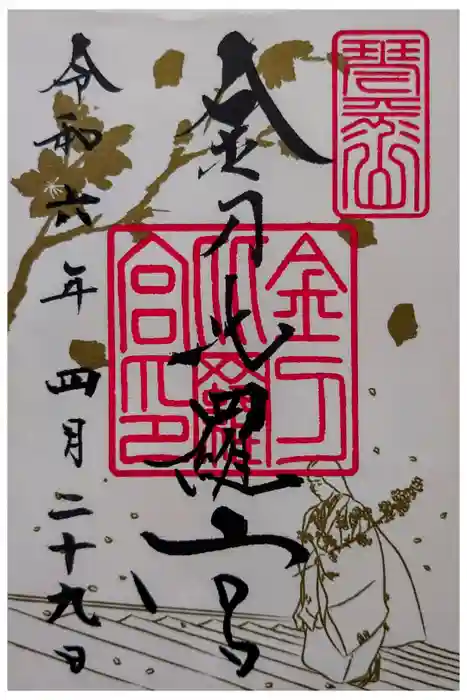 琴平山
金刀比羅宮
金刀
比羅
宮印
令和六年四月二十九日